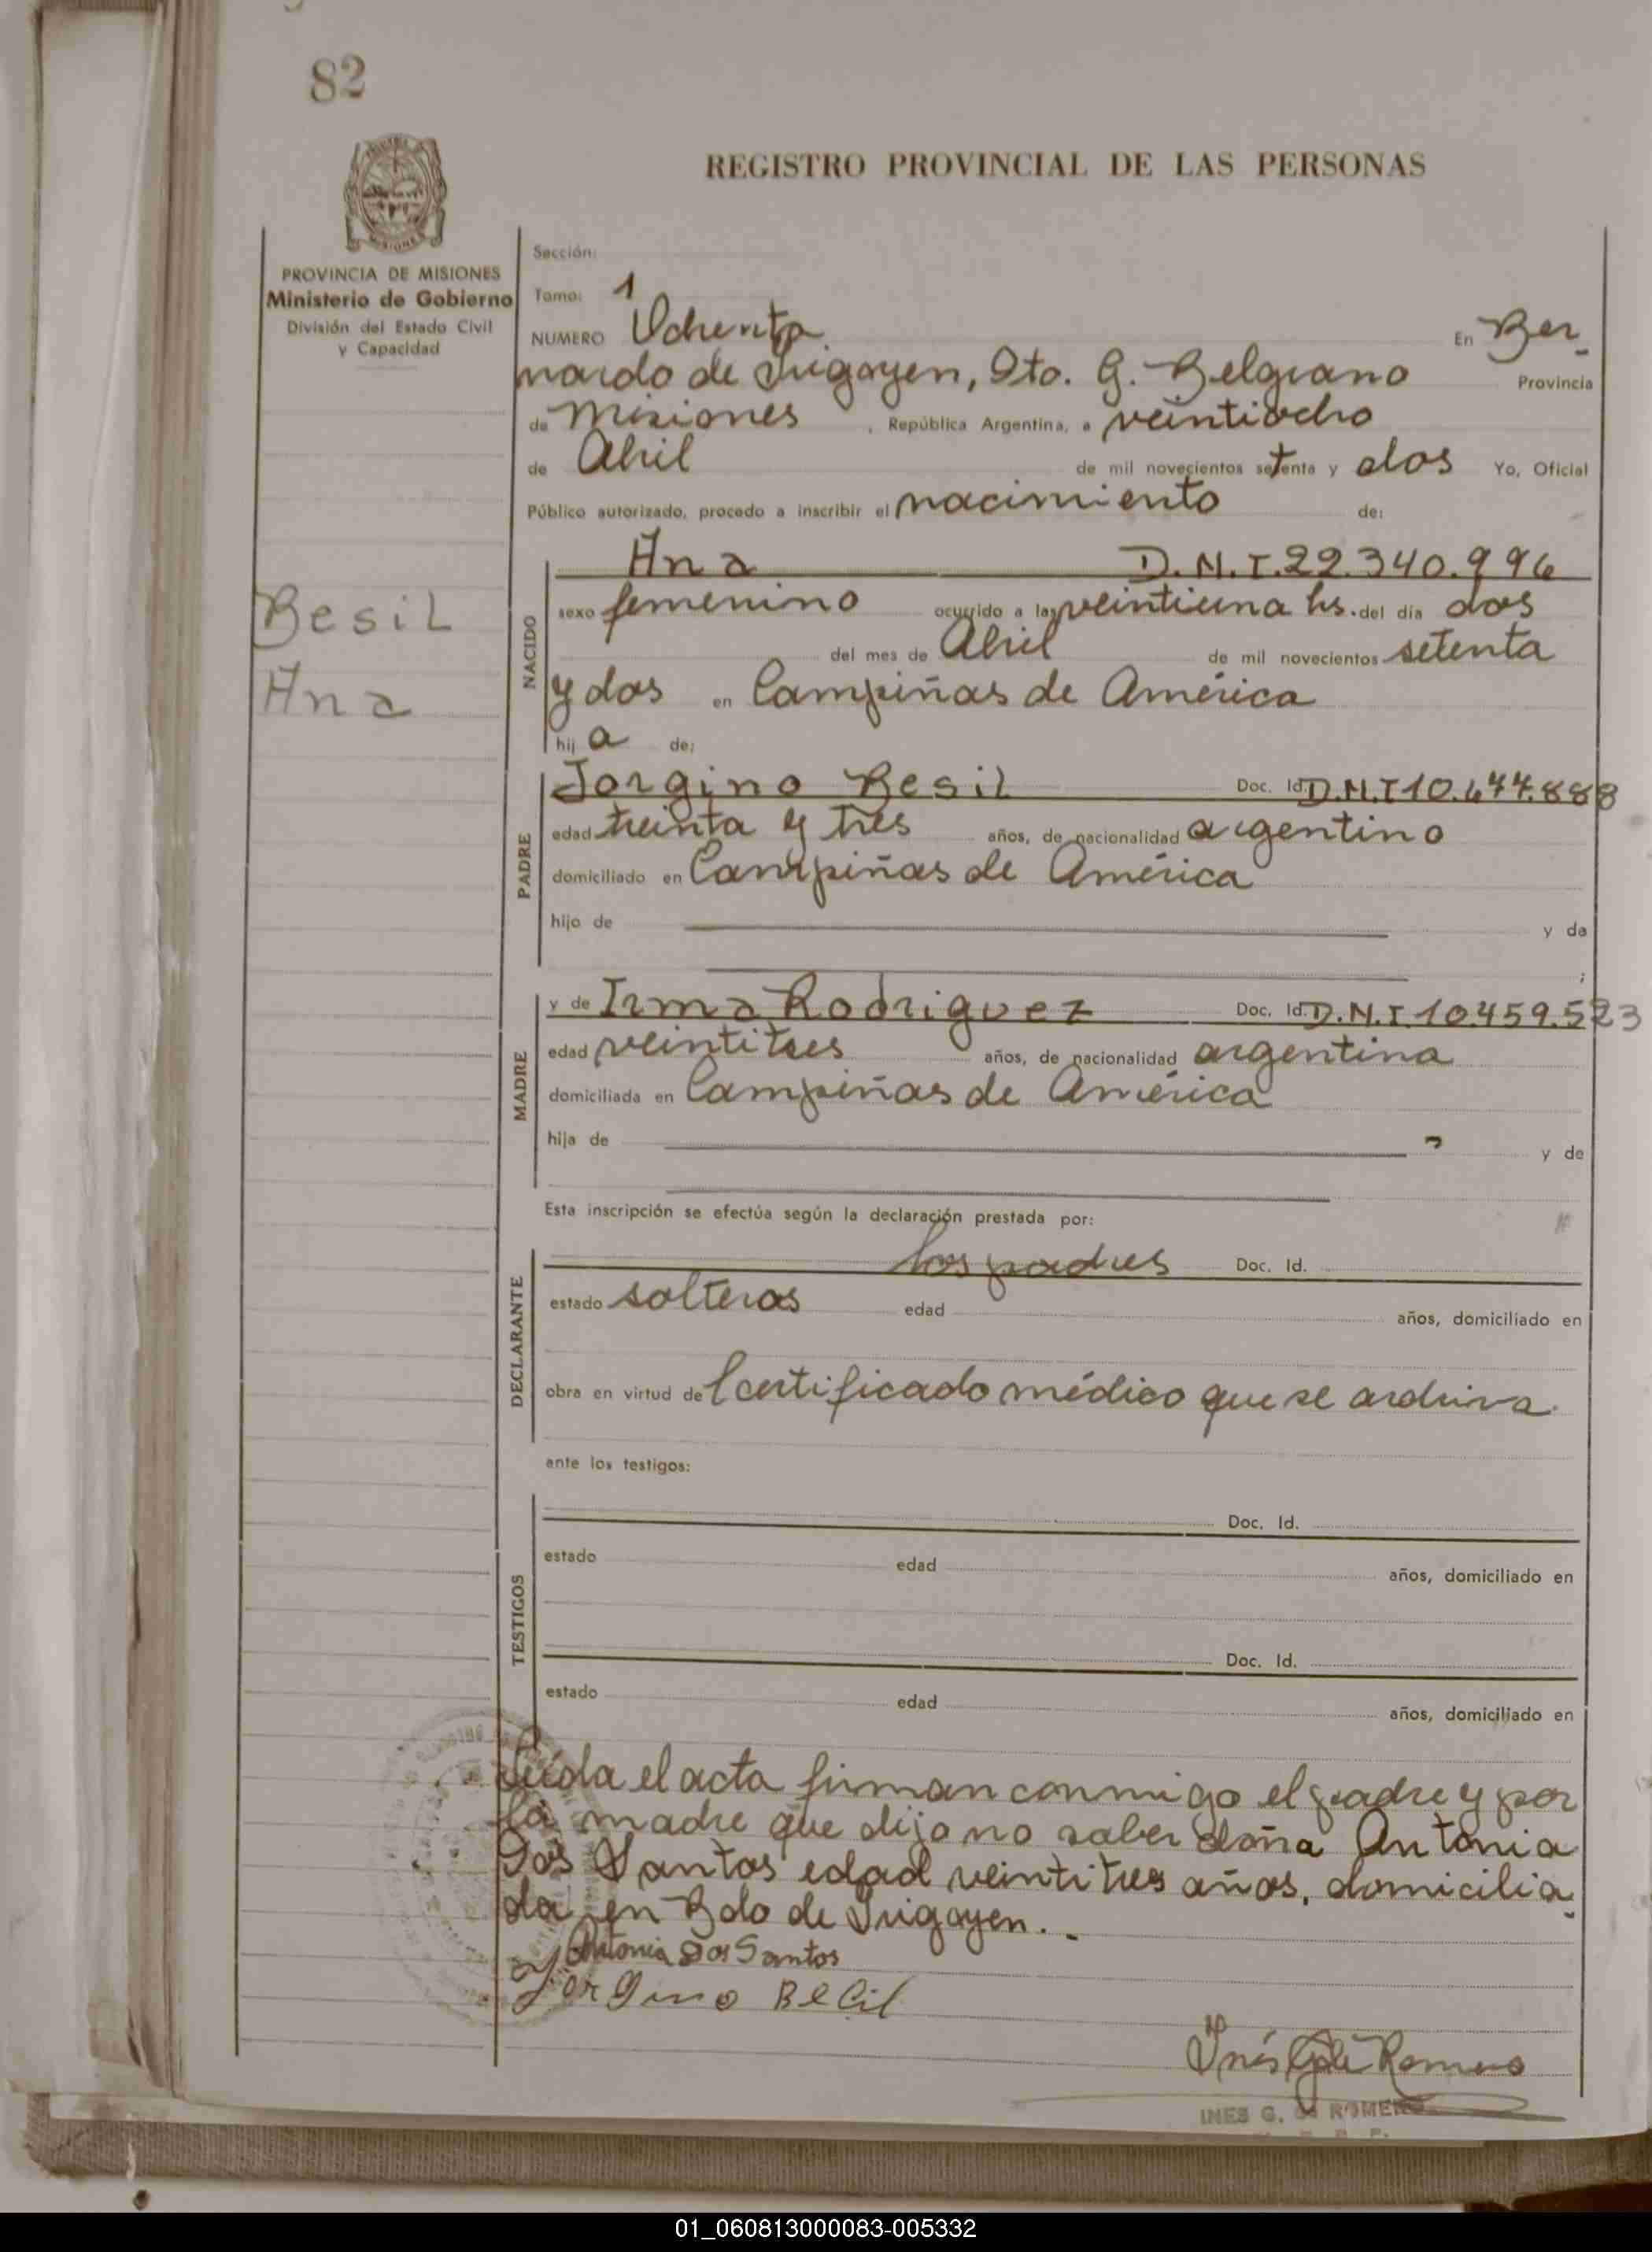 82
REGISTRO PROVINCIAL DE LAS PERSONAS
PROVINCIA DE MISIONES
Ministerio de Gobierno
División del Estado Civil
y Capacidad
Sección:
Tomo: 1
NUMERO Ochenta En Ber-
nardo de Irigoyen, Dto. G. Belgrano Provincia
de Misiones, República Argentina, a veintiocho
de Abril de mil novecientos setenta y dos Yo, Oficial
Público autorizado, procedo a inscribir el nacimiento de:
Besil
Ana
NACIDO
Ana D.N.I. 22.340.996
sexo femenino ocurrido a las veintiuna hs. del día dos
del mes de Abril de mil novecientos setenta
y dos en Campiñas de América
hij a de:
PADRE
Jorgino Besil Doc. Id. D.N.I 10.677.888
edad treinta y tres años, de nacionalidad argentino
domiciliado en Campiñas de América
hijo de y de
;
MADRE
y de Irma Rodriguez Doc. Id. D.N.I. 10.459.523
edad veintitres años, de nacionalidad argentina
domiciliada en Campiñas de América
hija de y de
Esta inscripción se efectúa según la declaración prestada por:
DECLARANTE
los padres Doc. Id.
estado solteros edad años, domiciliado en
obra en virtud de Certificado médico que se archiva.
ante los testigos:
TESTIGOS
Doc. Id.
estado edad años, domiciliado en
Doc. Id.
estado edad años, domiciliado en
Leída el acta firman conmigo el padre y por
la madre que dijo no saber doña Antonia
Dos Santos edad veintitres años, domicilia-
da en Bdo de Irigoyen.-
Antonia Dos Santos
Jorgino Becil
Inés G. de Romero
INES G. de ROMERO
01_060813000083-005332